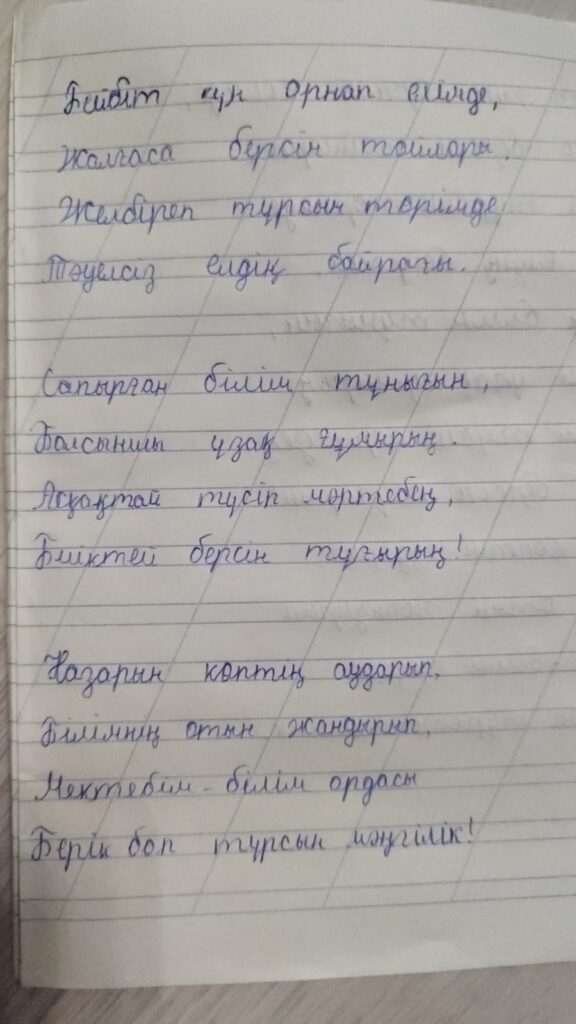 Бейбіт күн орнап елімде,
Жалғаса берсін тойлары.
Желбіреп тұрсын төрімде
Тәуелсіз елдің байрағы.
Сапырған білім тұнығын,
Болсыншы ұзақ ғұмырың.
Асқақтай түсіп мәртебең,
Биіктей берсін тұғырың!
Назарын көптің аударып,
Білімнің отын жандырып,
Мектебім - білім ордасы
Берік боп тұрсын мәңгілік!